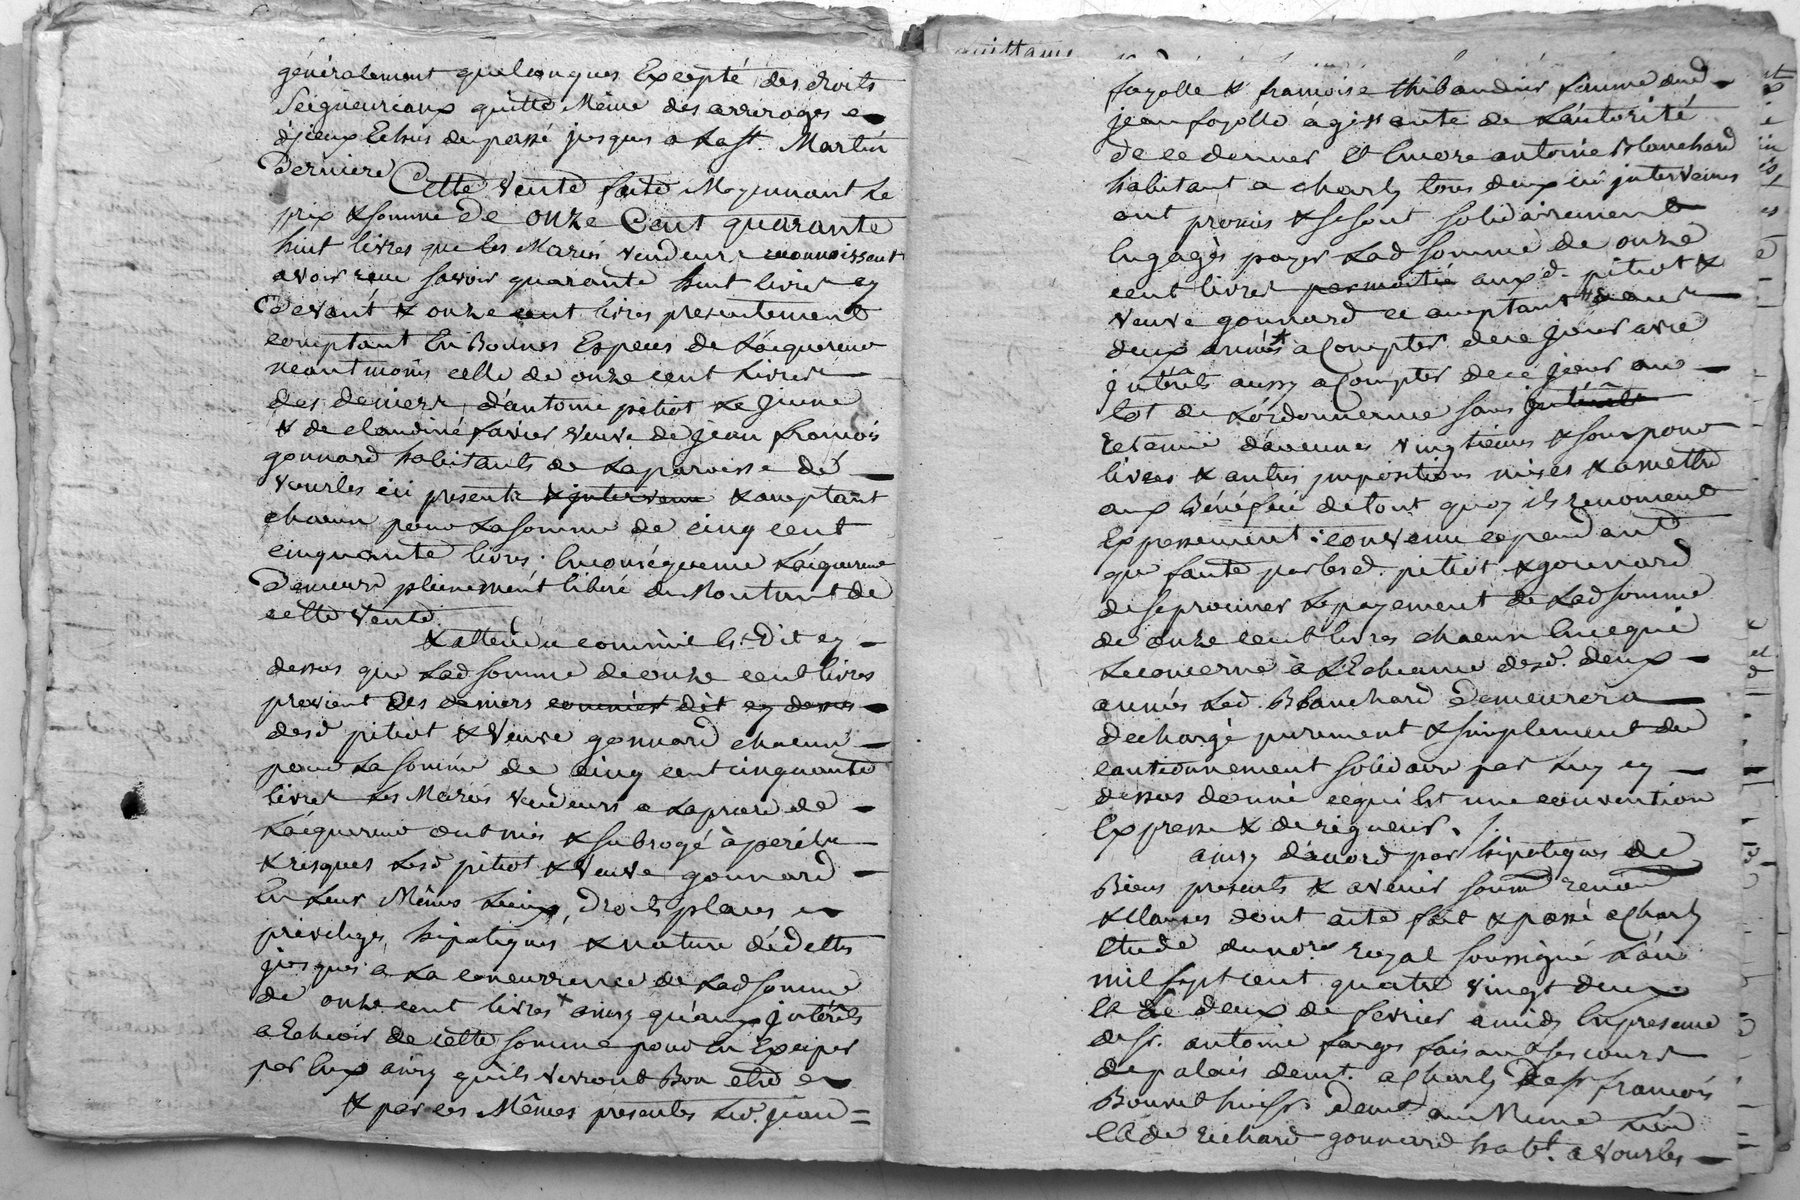 généralement quelconques Excepté des droits
Seigneuriaux quitte Même des arrerages
d'jceux Echus du passé jusques a La st. Martin
Derniere Cette vente faite Moyennant Le
prix & somme de onze Cent quarante
huit livres que les Mariés vendeurs reconnoissent
avoir reçu savoir quarante huit livres cy
Devant & onze cent livres presentement
comptant En Bonnes Especes de L'acquereur
neantmoins celle de onze cent Livres
des deniers d'antoine pitiot Le Jeune
& de claudine favier veuve de jean francois
gonnard habitants de La paroisse de
vourles ici presents & intervenu & acceptant
chacun pour La somme de cinq cent
cinquante livres. En conséquence L'acquereur
Demeure pleinement libéré du Montant de
cette vente.
& attendu comme Est Dit cy
dessus que Lad somme de onze cent livres
provient des deniers comme est dit cy dessus
desd pitiot & veuve gonnard chacun
pour La somme de cinq cent cinquante
livres Les Mariés vendeurs a La priere de
L'acquereur ont mis & subrogé à perils
& risques Lesd pitiot & veuve gonnard
En Leur Mêmes Lieux, Droits places
privileges, hipoteques & nature de dettes
jusques a La concurrence de Lad somme
de onze cent livres ainsy qu'aux jntérêts
a Echeoir de cette somme pour En Exciper
par Eux ainsy qu'ils verront Bon etre
& par ces Mêmes presentes Led. jean
fayolle & francoise thibaudier femme dud
jean fayolle agissante de L'autorité
de ce dernier Et Encore antoine Blanchard
habitant a charly tous deux ici jntervenus
ont promis & se sont solidairement
Engagés payer Lad somme de onze
cent livres par moitié auxd. pitiot &
veuve gonnard ce acceptant dans
deux années a Compter de ce jour avec
jntérêts aussy a Compter de ce jour au
lot de L'ordonnance sans jntérêts
retenue d'aucunes vingtiemes & sous pour
livres & autres jmpositions mises & a mettre
aux Bénéfice de tout quoy ils renoncent
Expressement: convenu cependant
que faute par lesd. pitiot & gonnard
de se procurer Le payement de Lad somme
de onze cent livres chacun En ce qui
Le concerne à L'Echeance desd. deux
années Led. Blanchard Demeurera
dechargé purement & simplement du
cautionnement solidaire par Luy cy
dessus donné ce qui Est une convention
Expresse & de rigueur.
ainsy d'accord par hipoteques de
Biens presents & avenir soum renon
& Clauses dont acte fait & passé a Charly
Etude du no.re royal soussigné L'an
mil sept cent quatre vingt deux
Et Le deux de fevrier a midy En presence
de sr. antoine farges faisant ses cours
de palais demt. a Charly & de sr francois
Bouret huissr. demt au Meme Lieu
Et de richard gonnard habt. a vourles